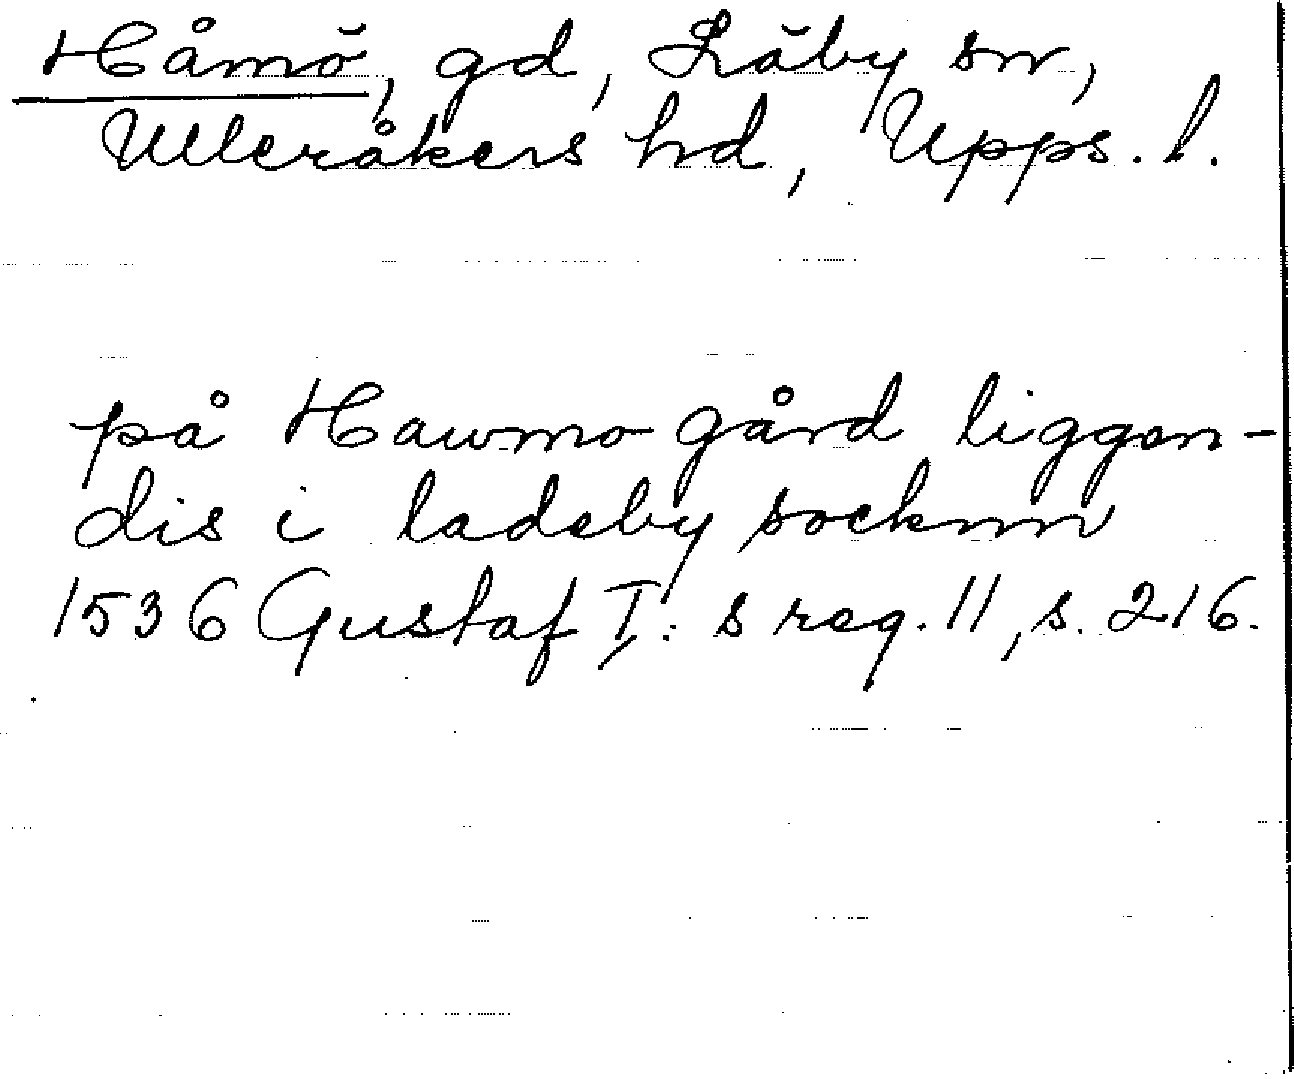 Håmö, gd, Läby sn,
Ulleråkers hd, Upps. l.
på Hawmo gård liggen-
dis i ladeby socknn
1536 Gustaf I: s reg. 11, s. 216.